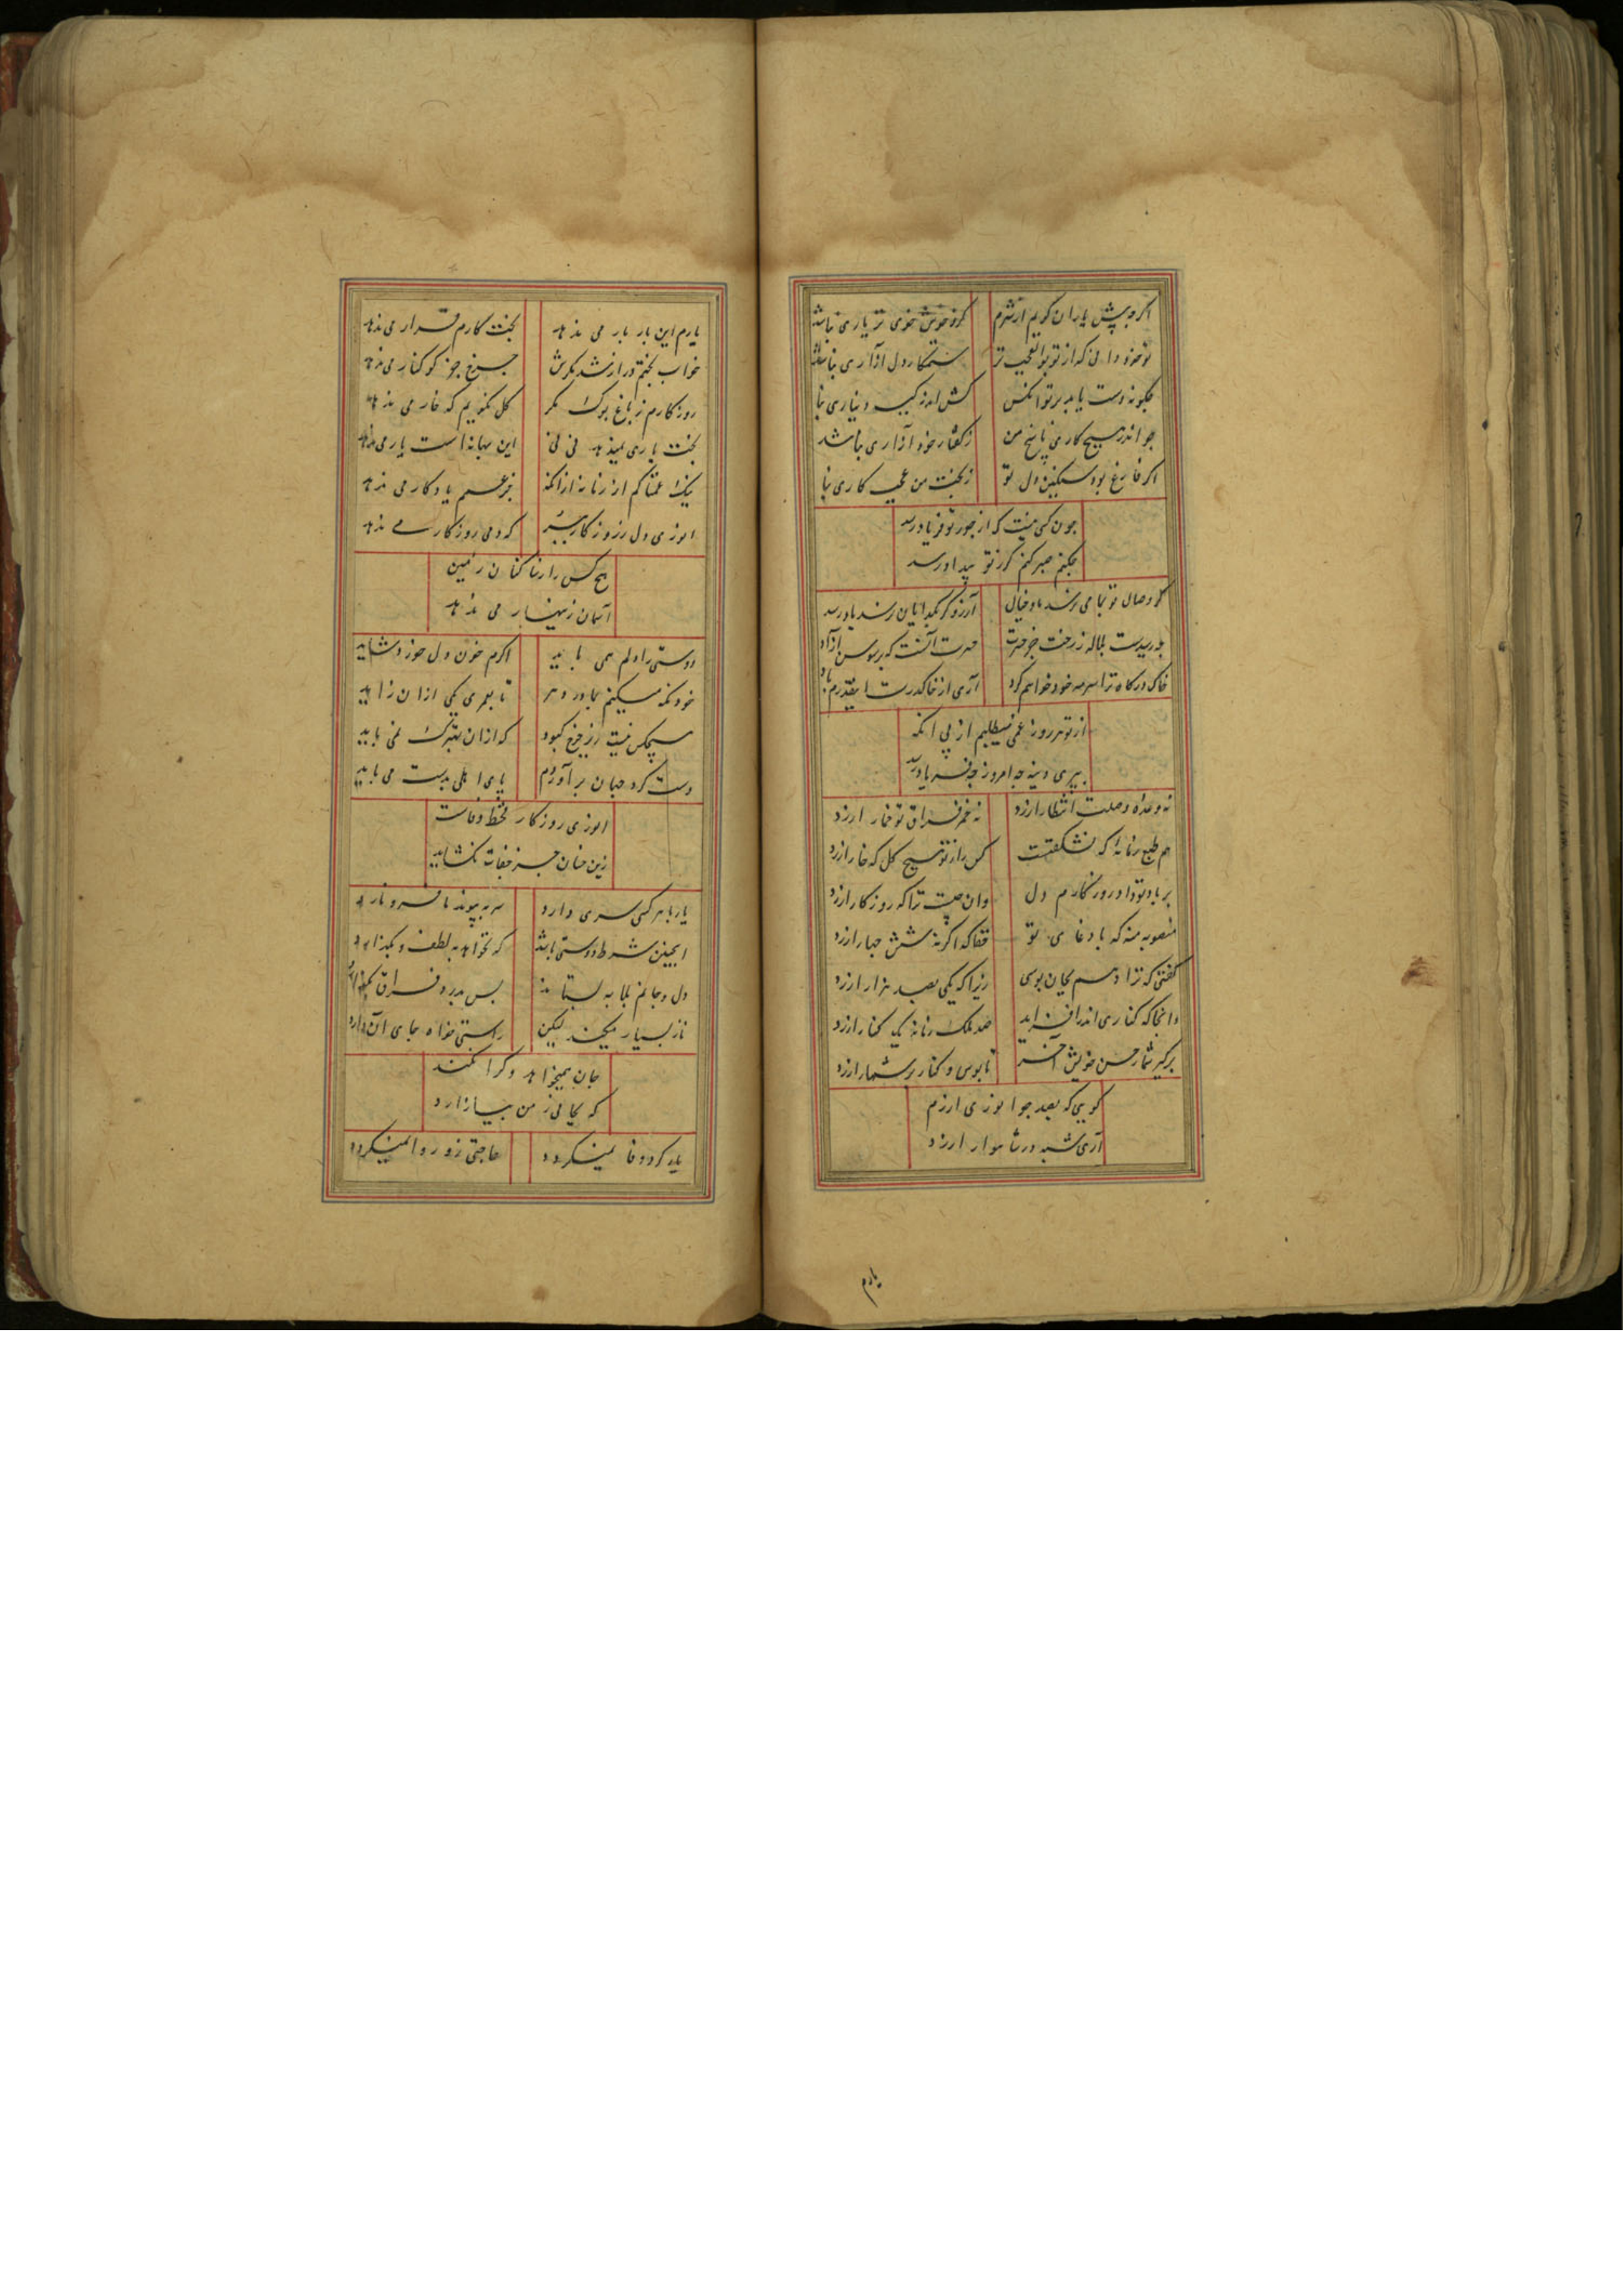 اگر چه پیش یاران گویم از شرم
کزو خوش خوی تر یاری نباشد
تو خود دانی که از تو بوالعجب تر
ستمکار و دل آزاری نباشد
چگونه دست یابد بر تو آنکس
کش اندر کیسه دیناری نبا
جو اندر هیچ کاری پاسخ من
ز گفتار خود آزاری نباشد
اگر فارغ بود سنگین دل تو
ز بخت من عجب کاری نبا
جون کسی نیست که از جور تو فریاد رسد
جکنم صبر کنم کر ز تو بیداد رسد
کر وصال تو بما می نرسد ما و خیال
آرزو کر بکدایان نرسد یاد رسد
آری از خاک درت اینقدرم باد
خاک درکاه ترا سرمه خود خواهم کرد
از تو هر روز غمی میطلبم از پی آنکه
نه وعده وصلت انتظار ارزد
نه خمر فراق تو خمار ارزد
هم طبع زمانه‌ای که نشکفتست
کس را ز تو هیچ کل که خار ارزد
بر باد تو داد روزکارم دل
وان چیست ترا که روزکار ارزد
منصوبه منه که با دغای تو
حقا که اگر نه شش جهار ارزد
کفتی که ترا دهم بجان بوسی
زیرا که یکی بصد هزار ارزد
وانجا که کناری اندر افزاید
صد ملک زمانه یک کنار ارزد
برگیر شمار حسن خویش آخر
تا بوس و کنار در شمار ارزد
گویی که بصد جو انوری ارزم
آری شبه در شاهوار ارزد
یارم
یارم این بار بار می ندهد
بخت کارم قرار می ندهد
خواب بختم دراز شد مکرش
جرخ جز کوکنار می ندهد
روزکارم ز باغ بوک و مکر
کل نکویم که خار می ندهد
بخت یاری نمیدهد نی نی
این بهانه است یار می ندهد
نیک غمناکم از زمانه از آنکه
جز غمم یادکار می ندهد
انوری دل ز روزکار ببر
که دمی روزکار می ندهد
هیج کس را زساکنان زمین
آسمان زینهار می ندهد
دوستی را دلم همی باید
اکرم خون دل خورد شاید
خود نکه میکنم بمادر دهر
تا بعمری یکی از آن زاید
هیچکس نیست زیر جرخ کبود
که از آن بهترک نمی باید
دست کرد جهان برآوردم
پای اهلی بدست می باید
انوری روزکار قحط وفاست
زین خسان جز جفات نکشاید
یار با هر کسی سری دارد
سر به پیوند ما فرو نارد
اینچنین شرط دوستی باشد
که بخواند به لطف و بکذارد
دل و جانم بلابه بستاند
پس بدرد فراق بسپارد
ناز بسیار میکند لیکن
راستی خواه جای آن دارد
جان همیخواهد و کرا نکند
که بجانی ز من بیازارد
یار کرد وفا نمیکردد
حاجتی زو روا نمیکردد